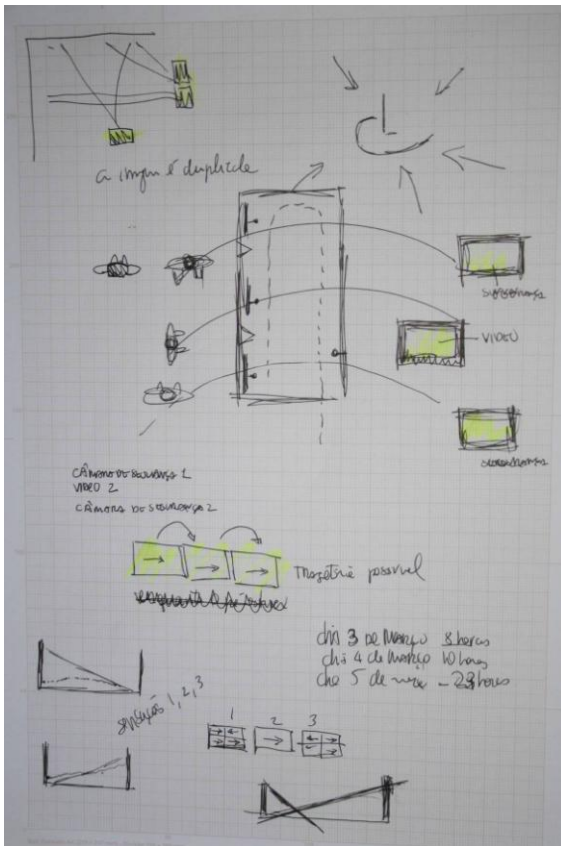 a imagem é duplicada
segurança
VIDEO
segurança
CÂMARA DE SEGURANÇA 1
VIDEO 2
CÂMARA DE SEGURANÇA 2
trajetória possível
dia 3 de Março 8 horas
dia 4 de Março 10 horas
5 de
situações 1, 2, 3
1 2 3